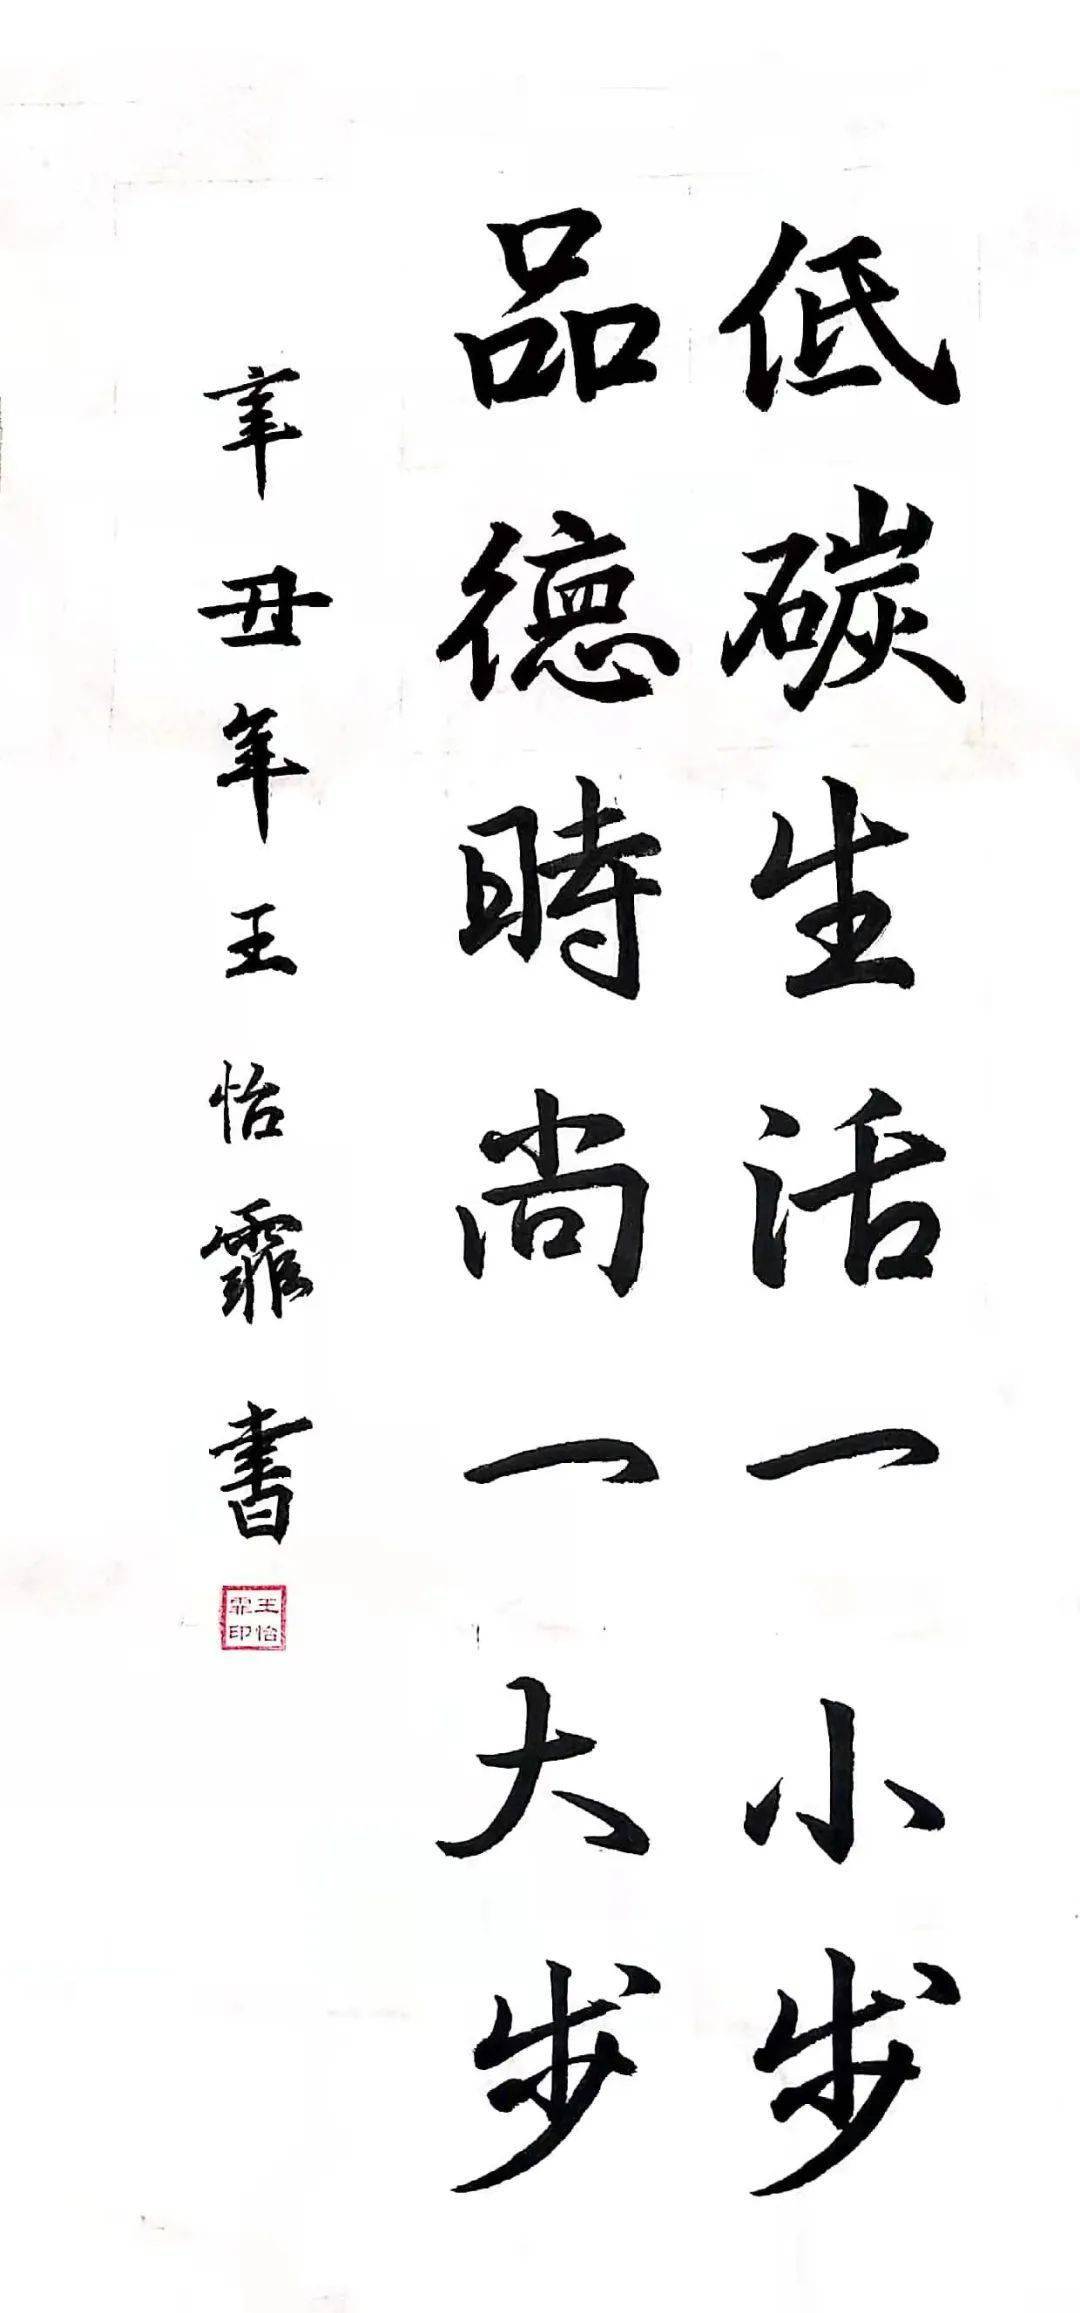 低碳生活一小步
品德時尚一大步
辛丑年王怡霏書
王怡
霏印